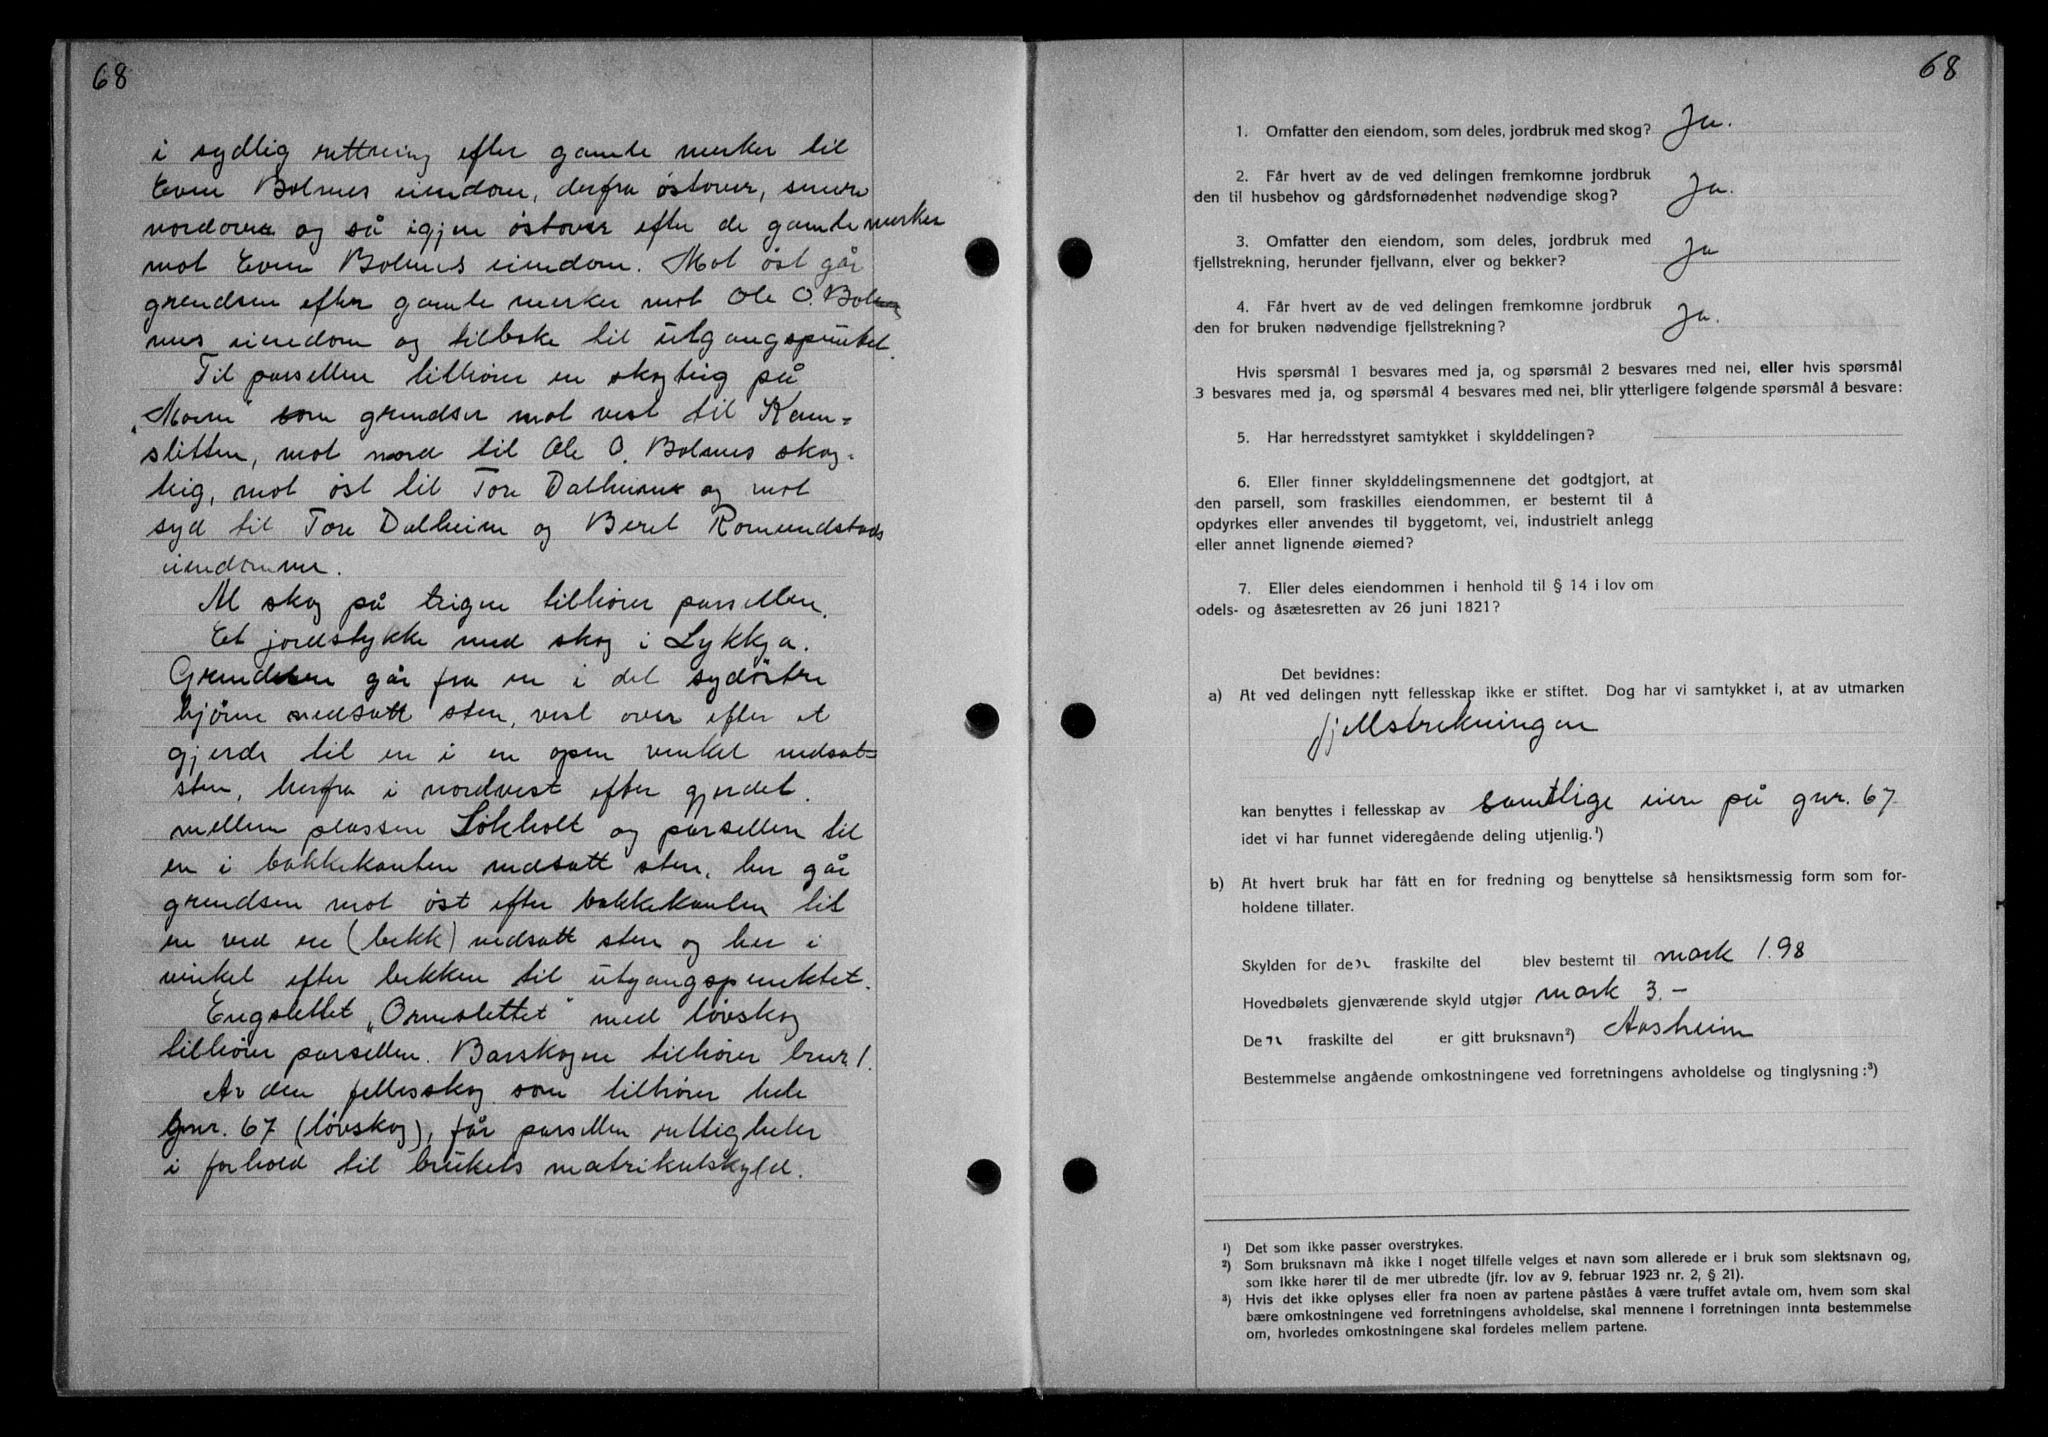 68
i sydlig rettning efter gamle merker til
Even Bolmes eiendom, derfra østover, snere
nordover og så igjen østover efter de gamle merker
mot Even Bolmes eiendom. Mot øst går
grendsen efter gamle merker mot Ole O. Bol-
mes eiendom og tilbake til utgangspunktet.
Til parsellen tilhører en skogteig på
"Moen" som grendser mot vest til Kam-
slitten, mot nord til Ole O. Bolmes skog-
teig, mot øst til Tore Dalheim og mot
syd til Tore Dalheim og Beret Romundstads
eiendommer.
Al skog på teigen tilhører parsellen.
Et jordstykke med skog i Lykkja.
Grendsen går fra en i det sydøstre
hjørne nedsatt sten, vest over efter et
gjerde til en i en open vinkel nedsatt
sten, herfra i nordvest efter gjerdet
mellem plassen Løkholt og parsellen til
en i bakkekanten nedsatt sten, her går
grendsen mot øst efter bakkekanten til
en ved en (bekk) nedsatt sten og her i
vinkel efter bekken til utgangspunktet.
Engslettet "Ormeslettet" med løvskog
tilhører parsellen. Barskogen tilhører brnr. 1.
Av den fellesskog som tilhører hele
Gnr. 67 (løvskog), får parsellen rettigheter
i forhold til brukets matrikulskyld.
68
1. Omfatter den eiendom, som deles, jordbruk med skog? Ja.
2. Får hvert av de ved delingen fremkomne jordbruk
den til husbehov og gårdsfornødenhet nødvendige skog? Ja.
3. Omfatter den eiendom, som deles, jordbruk med
fjellstrekning, herunder fjellvann, elver og bekker? Ja
4. Får hvert av de ved delingen fremkomne jordbruk
den for bruken nødvendige fjellstrekning? Ja.
Hvis spørsmål 1 besvares med ja, og spørsmål 2 besvares med nei, eller hvis spørsmål
3 besvares med ja, og spørsmål 4 besvares med nei, blir ytterligere følgende spørsmål å besvare:
5. Har herredsstyret samtykket i skylddelingen?
6. Eller finner skylddelingsmennene det godtgjort, at
den parsell, som fraskilles eiendommen, er bestemt til å
opdyrkes eller anvendes til byggetomt, vei, industrielt anlegg
eller annet lignende øiemed?
7. Eller deles eiendommen i henhold til § 14 i lov om
odels- og åsætesretten av 26 juni 1821?
Det bevidnes:
a) At ved delingen nytt fellesskap ikke er stiftet. Dog har vi samtykket i, at av utmarken
fjellstrekningen
kan benyttes i fellesskap av samtlige eiere på gnr. 67
idet vi har funnet videregående deling utjenlig.¹)
b) At hvert bruk har fått en for fredning og benyttelse så hensiktsmessig form som for-
holdene tillater.
Skylden for den fraskilte del blev bestemt til mark 1.98
Hovedbølets gjenværende skyld utgjør mark 3.-
Den fraskilte del er gitt bruksnavn²) Aasheim
Bestemmelse angående omkostningene ved forretningens avholdelse og tinglysning:³)
¹) Det som ikke passer overstrykes.
²) Som bruksnavn må ikke i noget tilfelle velges et navn som allerede er i bruk som slektsnavn og,
som ikke hører til de mer utbredte (jfr. lov av 9. februar 1923 nr. 2, § 21).
³) Hvis det ikke oplyses eller fra noen av partene påståes å være truffet avtale om, hvem som skal
bære omkostningene ved forretningens avholdelse, skal mennene i forretningen innta bestemmelse
om, hvorledes omkostningene skal fordeles mellem partene.